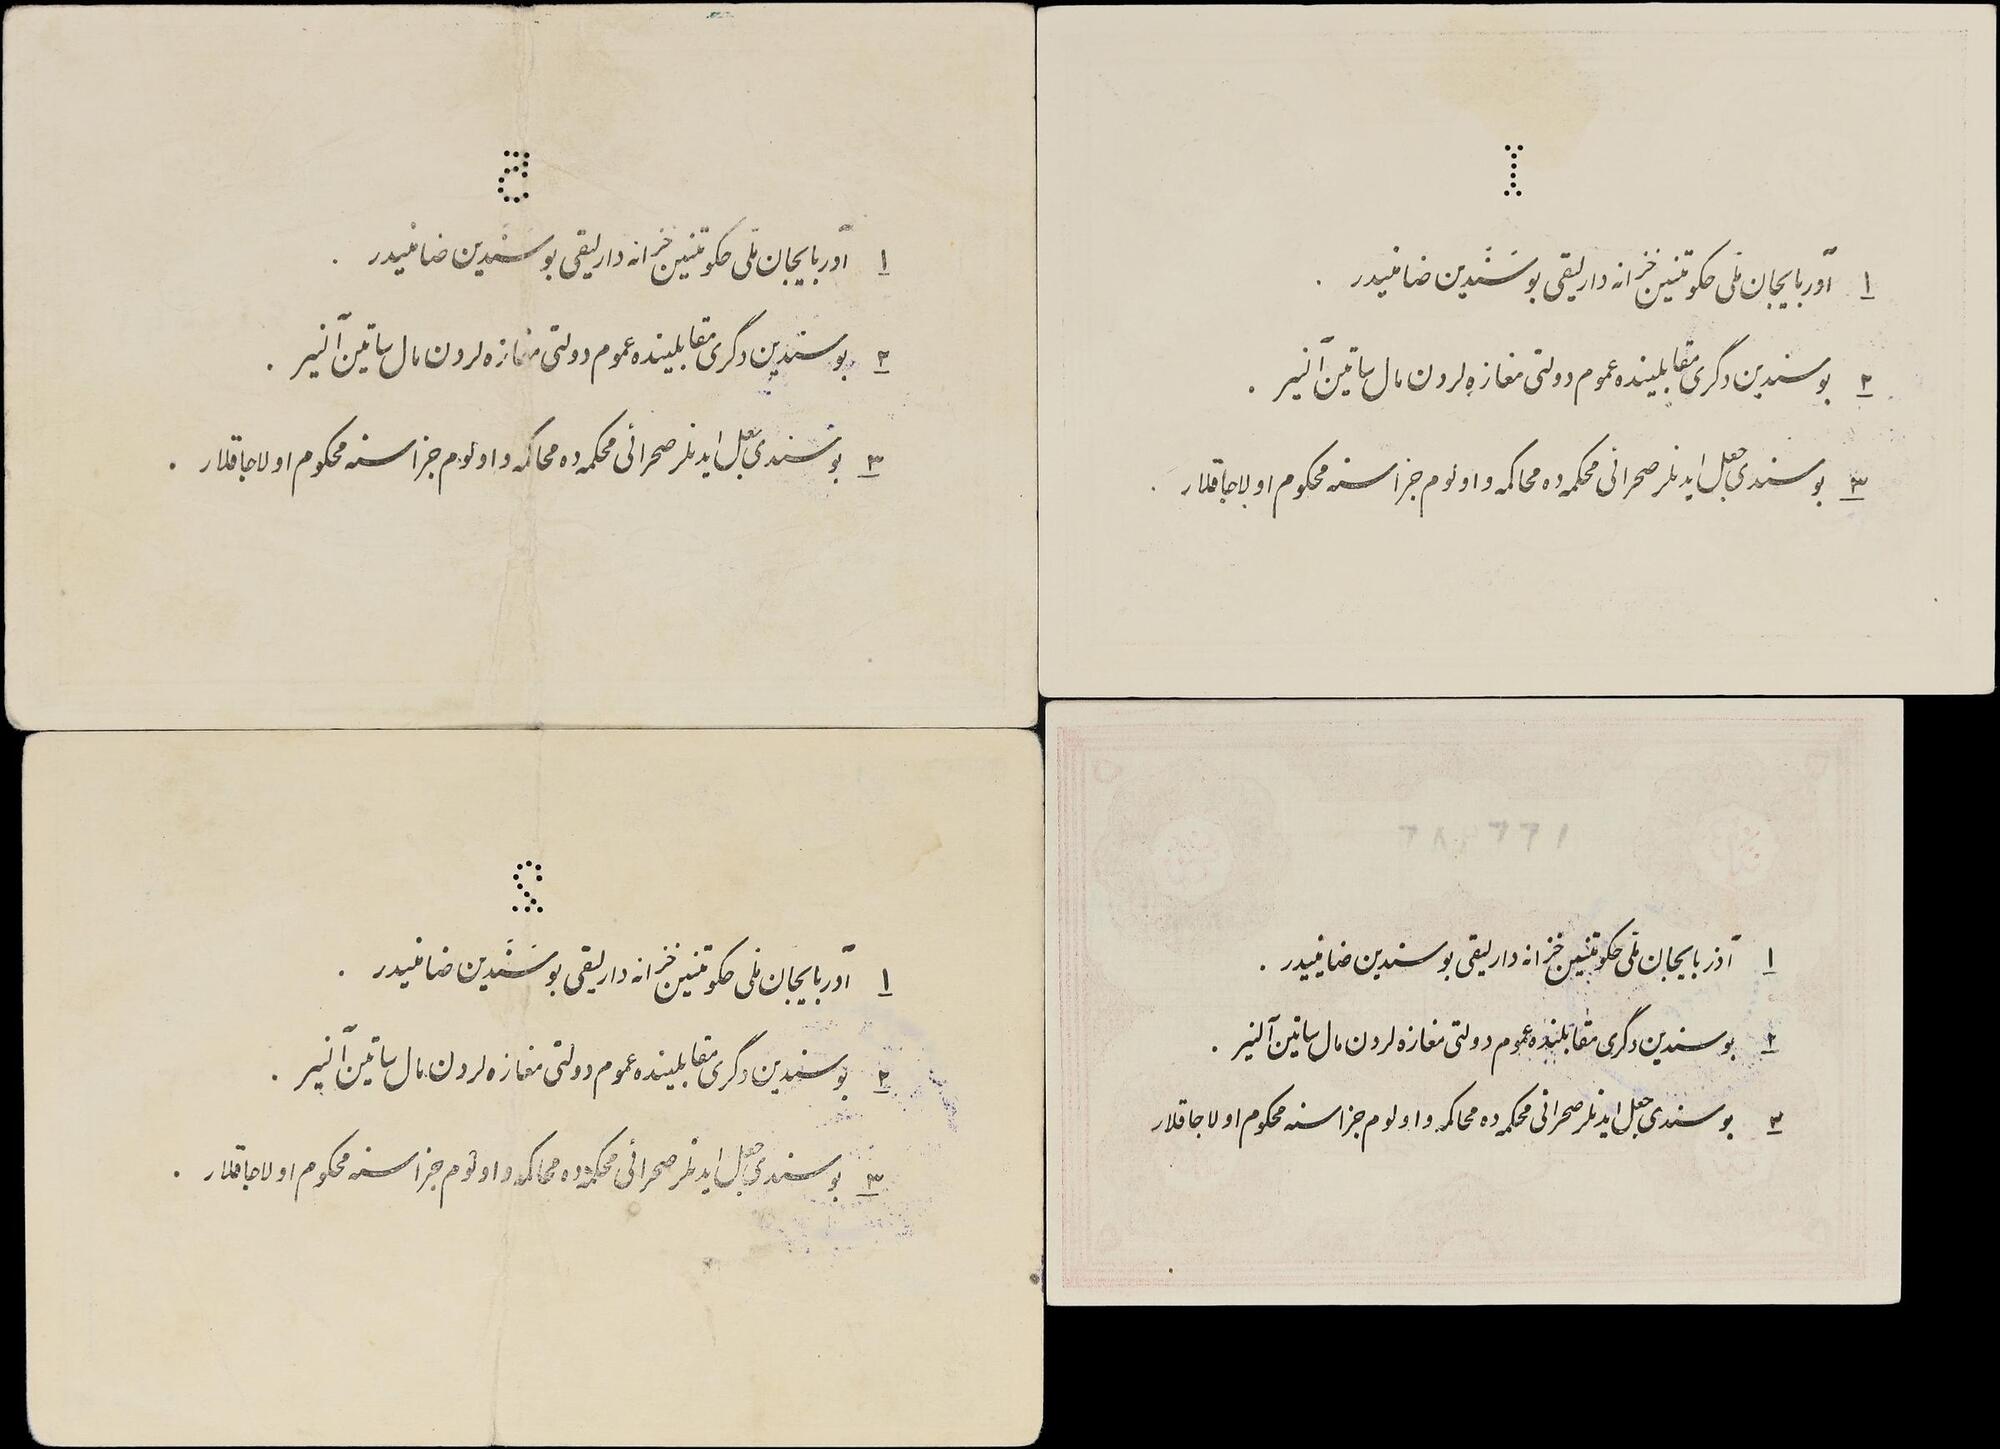 5
۱ آذربایجان ملی حکومتینین خزانه دارلیقی بو سَنَدین ضامنیدر .
۲ بو سندین دگری مقابلینده عموم دولتی مغازه لردن مال ساتین آلنیر .
۳ بو سندی جعل ایدنلر صحرائی محکمه ده محاکمه و اولوم جزاسنه محکوم اولاجاقلار .
1
۱ آذربایجان ملی حکومتینین خزانه دارلیقی بو سَنَدین ضامنیدر .
۲ بو سندین دگری مقابلینده عموم دولتی مغازه لردن مال ساتین آلنیر .
۳ بو سندی جعل ایدنلر صحرائی محکمه ده محاکمه و اولوم جزاسنه محکوم اولاجاقلار .
2
۱ آذربایجان ملی حکومتینین خزانه دارلیقی بو سَنَدین ضامنیدر .
۲ بو سندین دگری مقابلینده عموم دولتی مغازه لردن مال ساتین آلنیر .
۳ بو سندی جعل ایدنلر صحرائی محکمه ده محاکمه و اولوم جزاسنه محکوم اولاجاقلار .
۱ آذربایجان ملی حکومتینین خزانه دارلیقی بو سندین ضامینیدر .
۲ بو سندین دگری مقابلنده عموم دولتی مغازه لردن مال ساتین آلنیر .
۳ بو سندی جعل ایدنلر صحرائی محکمه ده محاکمه و اولوم جزاسنه محکوم اولاجاقلار